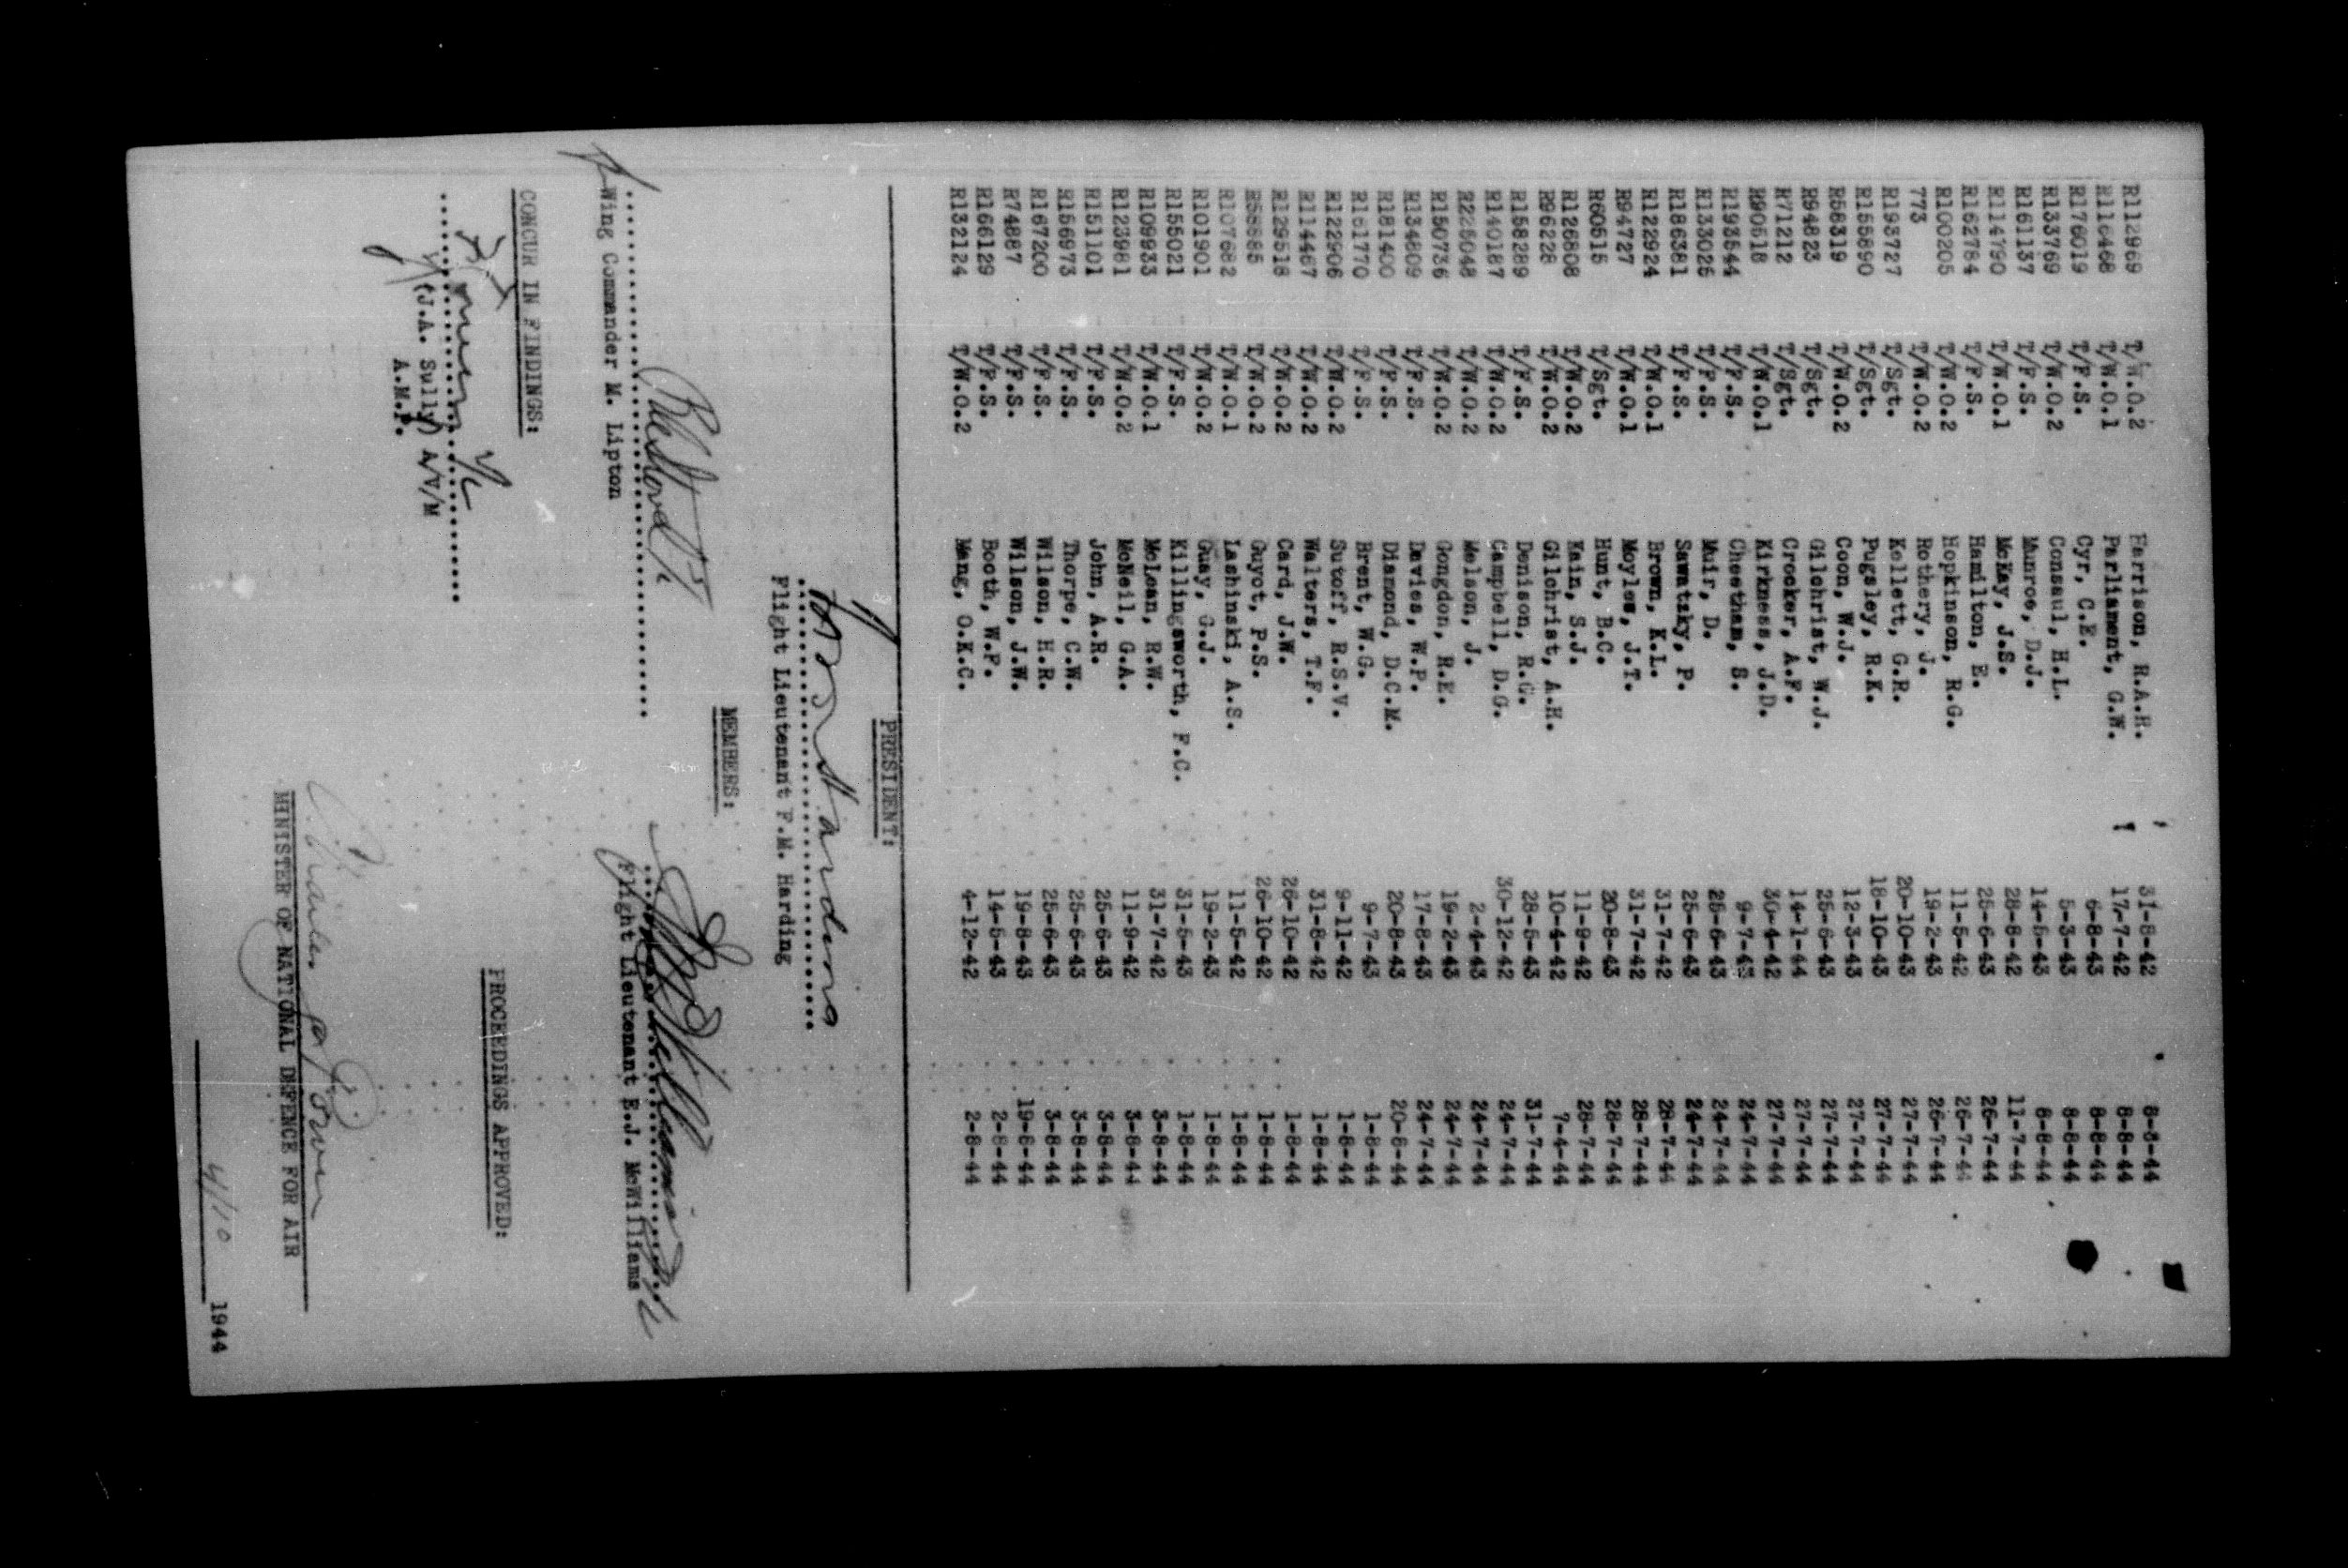 R112969 T/W.O.2 Harrison, R.A.H. 31-8-42 8-8-44
R116468 T/W.O.1 Parliament, G.W. 17-7-42 8-8-44
R176019 T/F.S. Cyr, C.E. 6-8-43 8-8-44
R133769 T/W.O.2 Consaul, H.L. 5-3-43 8-8-44
R161137 T/F.S. Munroe, D.J. 14-5-43 8-8-44
R114790 T/W.O.1 McKay, J.S. 28-8-42 11-7-44
R162784 T/F.S. Hamilton, E. 25-6-43 26-7-44
R100205 T/W.O.2 Hopkinson, R.G. 11-5-42 26-7-44
773 T/W.O.2 Rothery, J. 19-2-43 26-7-44
R193727 T/Sgt. Kellett, G.R. 20-10-43 27-7-44
R155890 T/Sgt. Pugsley, R.K. 18-10-43 27-7-44
R58319 T/W.O.2 Coon, W.J. 12-3-43 27-7-44
R94823 T/Sgt. Gilchrist, W.J. 25-6-43 27-7-44
R71212 T/Sgt. Crocker, A.F. 14-1-44 27-7-44
R90518 T/W.O.1 Kirkness, J.D. 30-4-42 27-7-44
R193544 T/F.S. Cheetham, S. 9-7-43 24-7-44
R133025 T/F.S. Muir, D. 25-6-43 24-7-44
R186381 T/F.S. Sawatzky, P. 25-6-43 24-7-44
R122924 T/W.O.1 Brown, K.L. 31-7-42 28-7-44
R94727 T/W.O.1 Moyles, J.T. 31-7-42 28-7-44
R60515 T/Sgt. Hunt, B.C. 20-8-43 28-7-44
R126808 T/W.O.2 Kain, S.J. 11-9-42 28-7-44
R96228 T/W.O.2 Gilchrist, A.H. 10-4-42 7-4-44
R158289 T/F.S. Denison, R.G. 28-5-43 31-7-44
R140187 T/W.O.2 Campbell, D.G. 30-12-42 24-7-44
R225048 T/W.O.2 Melson, J. 2-4-43 24-7-44
R150736 T/W.O.2 Congdon, R.E. 19-2-43 24-7-44
R134809 T/F.S. Davies, W.P. 17-8-43 24-7-44
R181400 T/F.S. Diamond, D.C.M. 20-8-43 20-6-44
R161770 T/F.S. Brent, W.G. 9-7-43 1-8-44
R122906 T/W.O.2 Sutoff, R.S.V. 9-11-42 1-8-44
R114467 T/W.O.2 Walters, T.F. 31-8-42 1-8-44
R129518 T/W.O.2 Card, J.W. 26-10-42 1-8-44
R58585 T/W.O.2 Guyot, P.S. 26-10-42 1-8-44
R107682 T/W.O.1 Lashinski, A.S. 11-5-42 1-8-44
R101901 T/W.O.2 Guay, G.J. 19-2-43 1-8-44
R155021 T/F.S. Killingsworth, F.C. 31-5-43 1-8-44
R109933 T/W.O.1 McLean, R.W. 31-7-42 3-8-44
R123981 T/W.O.2 McNeil, G.A. 11-9-42 3-8-44
R151101 T/F.S. John, A.R. 25-6-43 3-8-44
R156973 T/F.S. Thorpe, C.W. 25-6-43 3-8-44
R167200 T/F.S. Wilson, H.R. 25-6-43 3-8-44
R74887 T/F.S. Wilson, J.W. 19-8-43 19-6-44
R166129 T/F.S. Booth, W.P. 14-5-43 2-8-44
R132124 T/W.O.2 Mang, O.K.C. 4-12-42 2-8-44
PRESIDENT:
Harding
Flight Lieutenant F.M. Harding
MEMBERS:
Wing Commander M. Lipton Flight Lieutenant E.J. McWilliams
CONCUR IN FINDINGS: PROCEEDINGS APPROVED:
(J.A. Sully) A/V/M
A.M.P.
MINISTER OF NATIONAL DEFENCE FOR AIR
4/10 1944